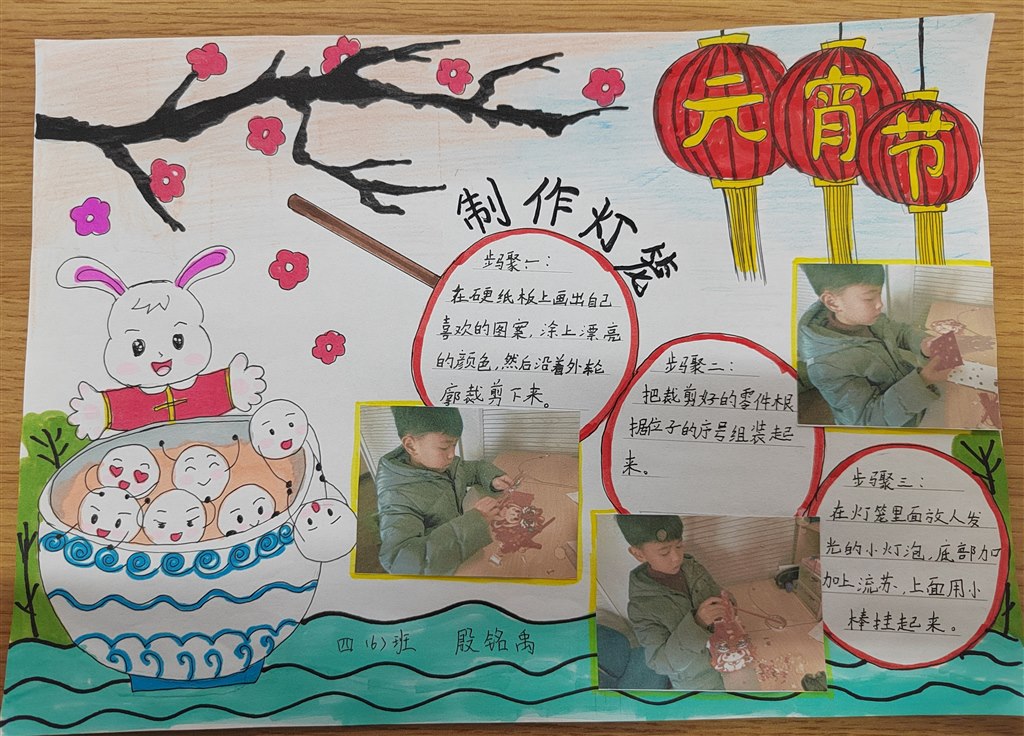 元宵节
制作灯笼
步骤一：
在硬纸板上画出自己
喜欢的图案，涂上漂亮
的颜色，然后沿着外轮
廓裁剪下来。
步骤二：
把裁剪好的零件根
据位子的序号组装起
来。
步骤三：
在灯笼里面放入发
光的小灯泡，底部加
加上流苏，上面用小
棒挂起来。
四(6)班 殷铭禹